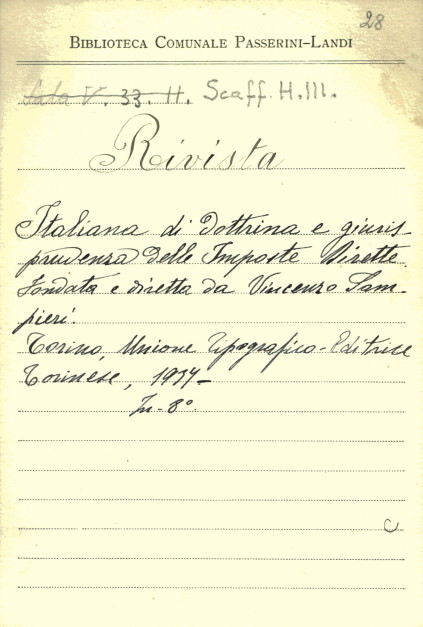 28
BIBLIOTECA COMUNALE PASSERINI-LANDI
Sala V. 33. H. Scaff. H. III.
Rivista
Italiana di dottrina e giuris-
prudenza delle Imposte Dirette
fondata e diretta da Vincenzo Sam-
pieri.
Torino, Unione Tipografico-Editrice
Torinese, 1937-
In-8°.
C